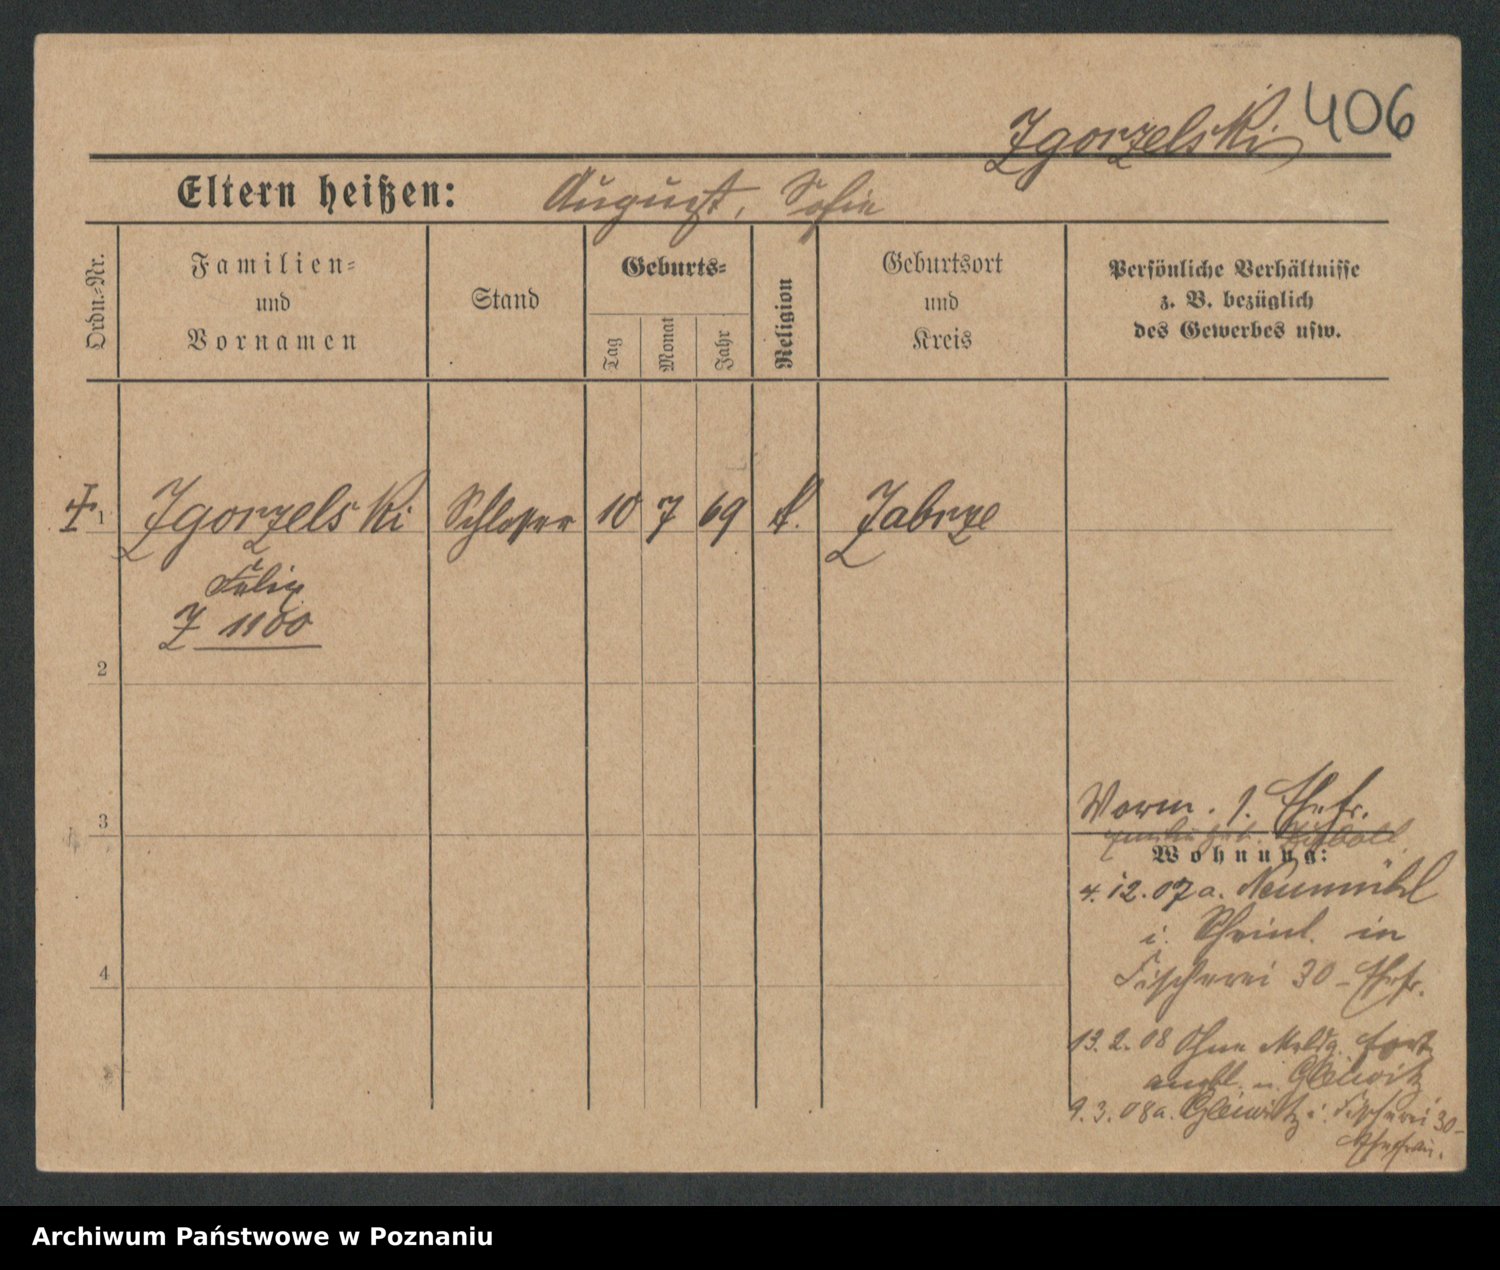 406
Zgorzelski
Eltern heißen: August, Sofie
Ordn.-Nr.
Familien-
und
Vornamen
Stand
Geburts-
Tag
Monat
Jahr
Religion
Geburtsort
und
Kreis
Persönliche Verhältnisse
z. B. bezüglich
des Gewerbes usw.
1 Zgorzelski Schlosser 10 7 69 k. Zabrze
Felix
Z 1100
2
3
4
Vorm. 1. Ehefr.
Wohnung:
4.12.07 a. Neumühl
i. Rheinl. in
Fischerei 30 - Ehefr.
13.2.08 Ohne Meldg. fort
angbl. n. Gleiwitz
9.3.08 a. Gleiwitz i. Fischerei 30 -
Ehefrau.
Archiwum Państwowe w Poznaniu